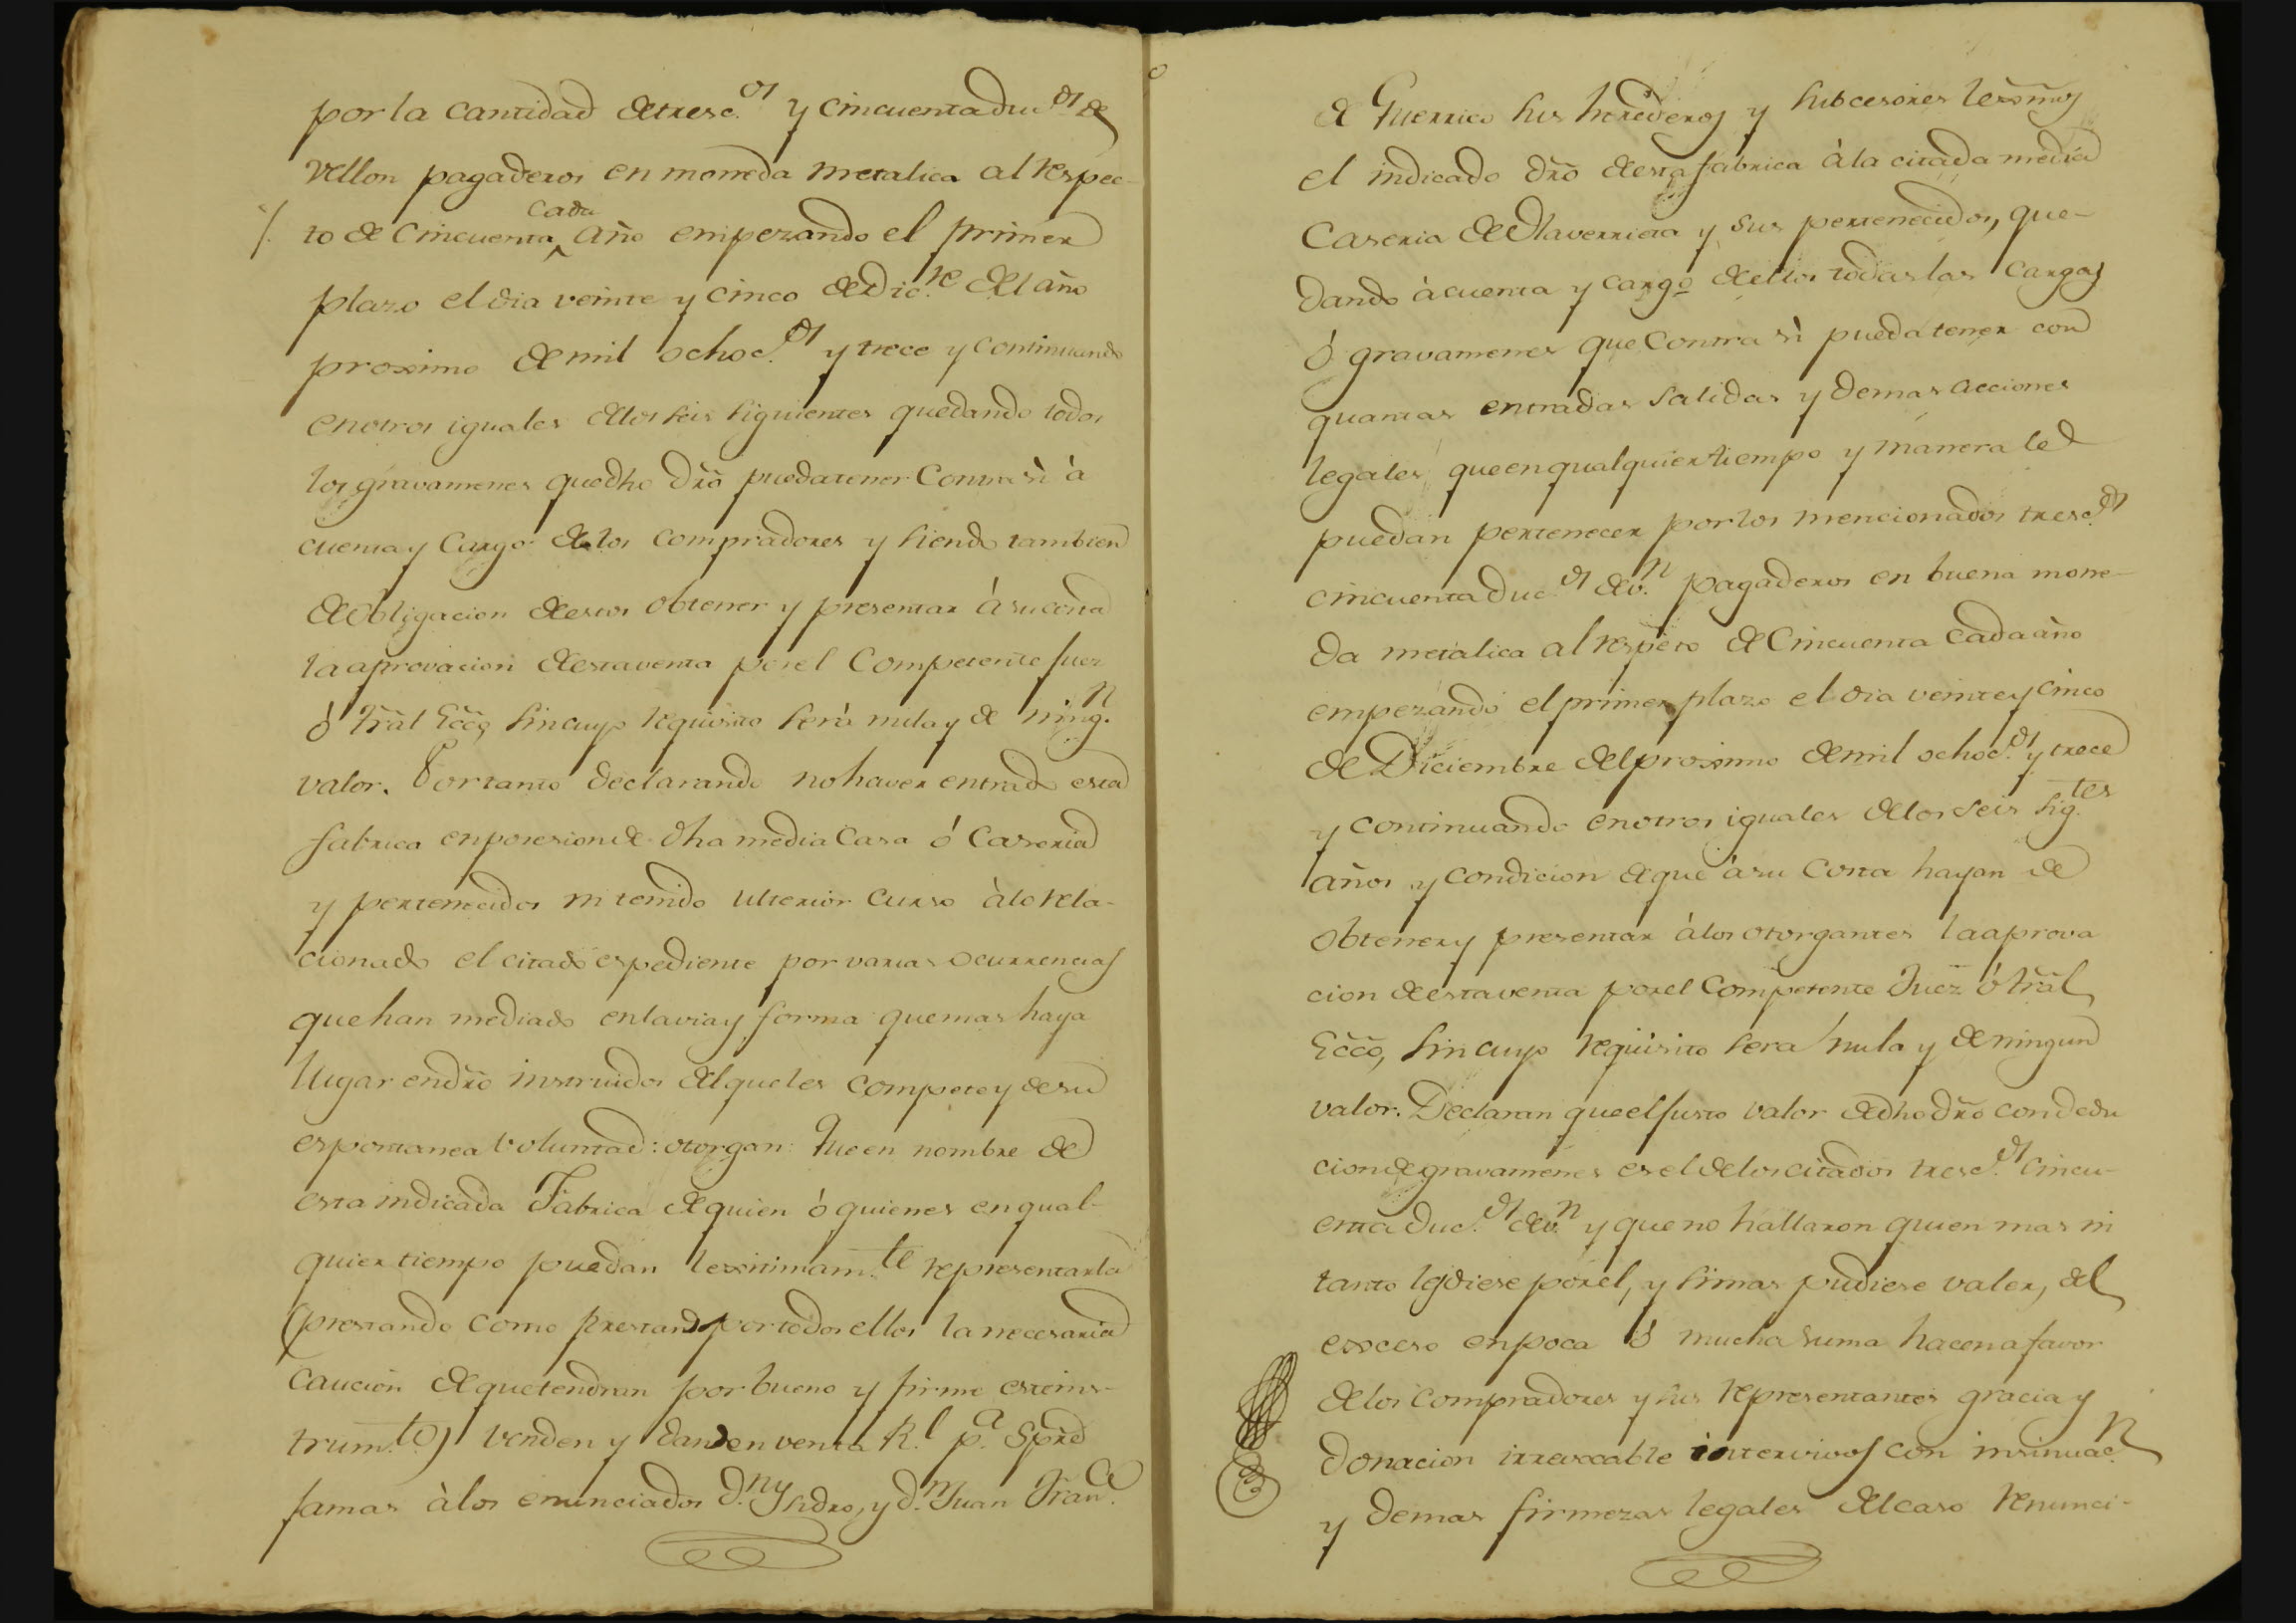 por la cantidad de tresc.os y cincuenta duc.os de
vellon pagaderos en moneda metalica al respec-
to de Cincuenta cada año empezando el primer
plazo el dia veinte y cinco de Dic.re del año
proximo de mil ochoc.os y trece y continuando
en otros iguales de los seis siguientes quedando todos
los gravamenes que dho dr̃o pueda tener Contra sì à
cuenta y Cargo de los compradores y siendo tambien
de obligacion de estos obtener y presentar à su costa
la aprovacion de esta venta por el Competente Juez
ò Tr̃al Ecc̃o, sin cuyo requisito serà nula y de ning.n
valor. Por tanto declarando no haver entrado esta
fabrica en posesion de dha media Casa ó Caseria
y pertenecidos ni tenido ulterior curso à lo rela-
cionado el citado espediente por varias ocurrencias
que han mediado en la via y forma que mas haya
lugar en dr̃o instruidos del que les compete y de su
espontanea voluntad: otorgan: Que en nombre de
esta indicada Fabrica de quien ò quienes en qual-
quier tiempo puedan lexitimam.te representarla
(prestando como prestan por todos ellos la necesaria
caucion de que tendran por bueno y firme este ins-
trum.to) venden y dan en venta R.l p.a Sprẽ
jamas à los enunciados d.n Ysidro, y d.n Juan Fran.co
de Guerrico sus herederos y subcesores lexm̃os
el indicado dr̃o de esta fabrica à la citada media
Caseria de Olaverrieta y sus pertenecidos, que-
dando à cuenta y cargo de ellos todas las cargas
ó gravamenes que Contra sì pueda tener con
quantas entradas salidas y demas acciones
legales que en qualquier tiempo y manera le
puedan pertenecer por los mencionados tresc.os
cincuenta duc.os de v.n pagaderos en buena mone-
da metalica al respeto de Cincuenta cada año
empezando el primer plazo el dia veinte y cinco
de Diciembre del proximo de mil ochoc.os y trece
y continuando en otros iguales de los seis sig.tes
años y condicion de que à su Costa hayan de
obtener y presentar à los otorgantes la aprova
cion de esta venta por el Competente Juez ò Tr̃al
Ecc̃o, sin cuyo requisito sera nula y de ningun
valor. Declaran que el justo valor de dho dr̃o con dedu
cion de gravamenes es el de los citados tresc.os cincu-
enta duc.os de v.n y que no hallaron quien mas ni
tanto les diese por el, y si mas pudiese valer, del
exceso en poca ó mucha suma hacen a favor
de los compradores y sus representantes gracia y
donacion irrevocable intervivos con insinuac.n
y demas firmezas legales del caso renunci-